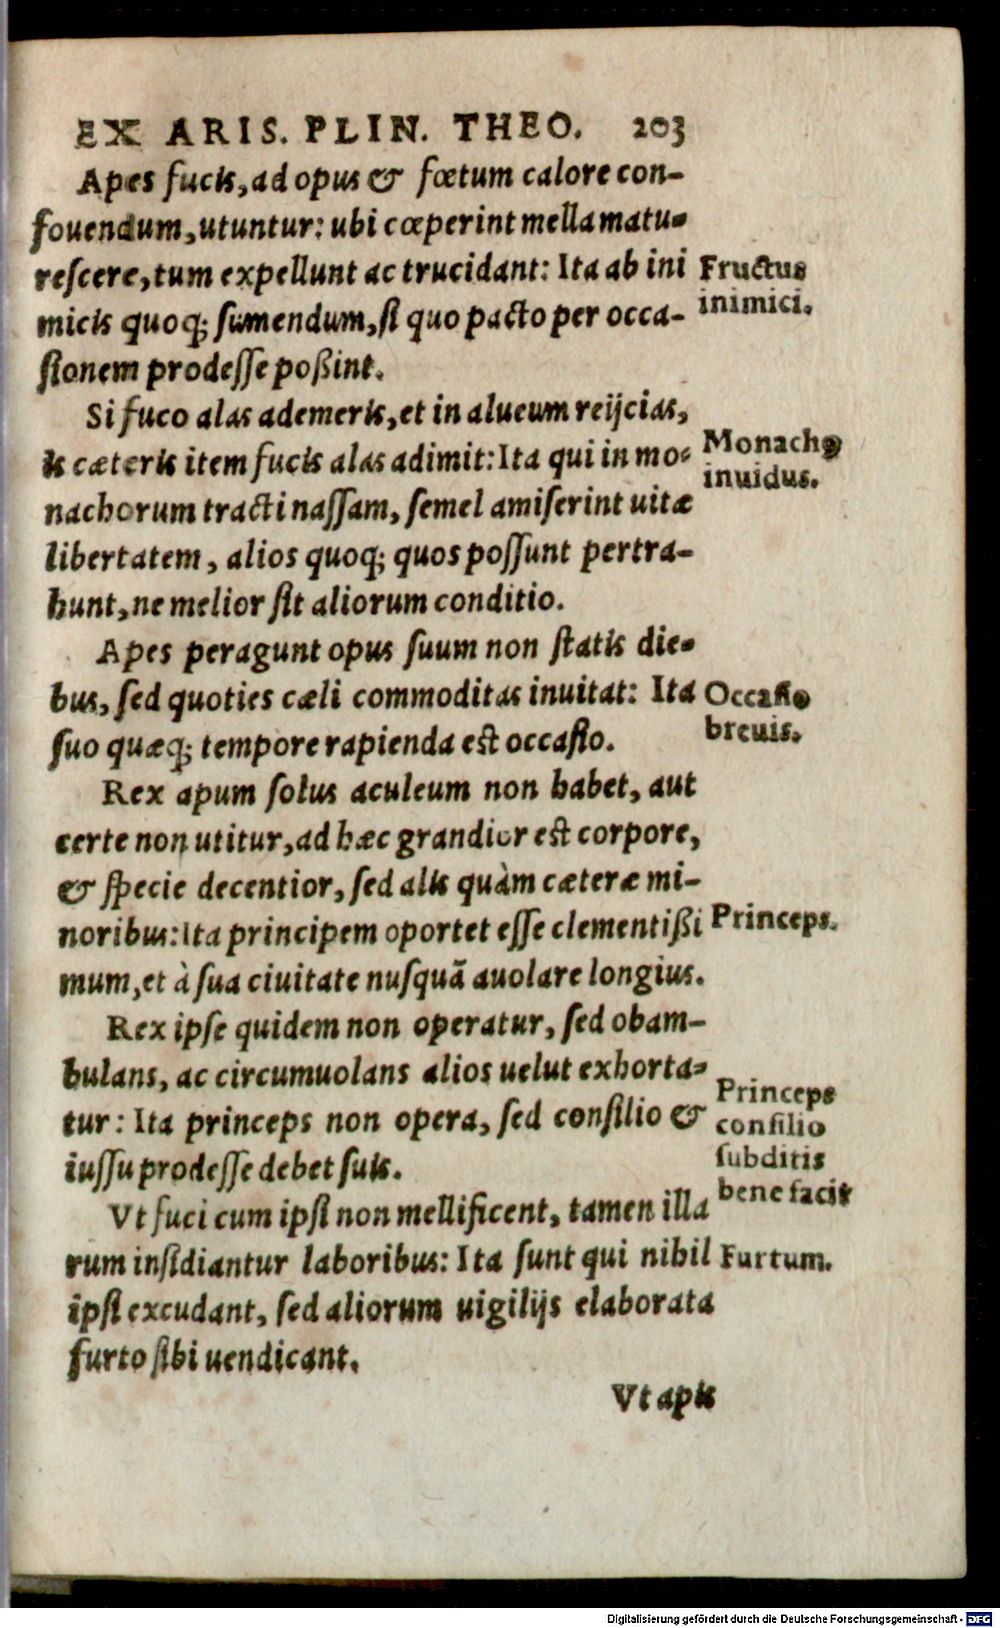 EX ARIS. PLIN. THEO. 203
Apes fucis, ad opus & fœtum calore con-
fouendum, utuntur: ubi cœperint mella matu-
rescere, tum expellunt ac trucidant: Ita ab ini
micis quoq; sumendum, si quo pacto per occa-
sionem prodesse poßint.
Fructus
inimici.
Si fuco alas ademeris, et in alueum reijcias,
is cæteris item fucis alas adimit: Ita qui in mo-
nachorum tracti nassam, semel amiserint uitæ
libertatem, alios quoq; quos possunt pertra-
hunt, ne melior sit aliorum conditio.
Monachꝰ
inuidus.
Apes peragunt opus suum non statis die-
bus, sed quoties cæli commoditas inuitat: Ita
suo quæq; tempore rapienda est occasio.
Occasio
breuis.
Rex apum solus aculeum non habet, aut
certe non utitur, ad hæc grandior est corpore,
& specie decentior, sed alis quàm cæteræ mi-
noribus: Ita principem oportet esse clementißi
mum, et à sua ciuitate nusquã auolare longius.
Princeps.
Rex ipse quidem non operatur, sed obam-
bulans, ac circumuolans alios uelut exhorta-
tur: Ita princeps non opera, sed consilio &
iussu prodesse debet suis.
Princeps
consilio
subditis
bene facit
Vt fuci cum ipsi non mellificent, tamen illa
rum insidiantur laboribus: Ita sunt qui nihil
ipsi excudant, sed aliorum uigilijs elaborata
furto sibi uendicant.
Furtum.
Vt apis
Digitalisierung gefördert durch die Deutsche Forschungsgemeinschaft - DFG